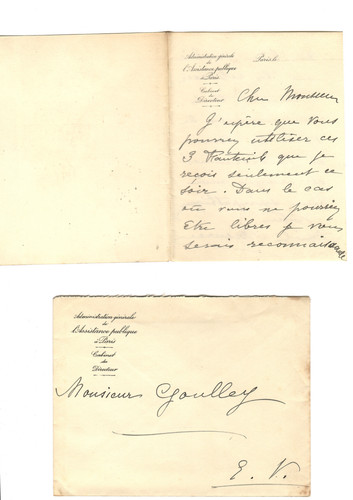 Administration générale
de
l'Assistance publique
à Paris
Cabinet
du
Directeur
Paris le
Cher Monsieur
J'espère que vous
pourrez utiliser ces
3 fauteuils que je
reçois seulement ce
soir. Dans le cas
où vous ne pourriez
être libres je vous
serais reconnaissante
Administration générale
de
l'Assistance publique
à Paris
Cabinet
du
Directeur
Monsieur Goulley
E. V.